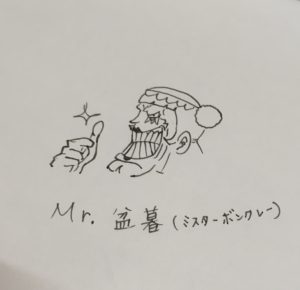 Mr. 盆暮(ミスターボンクレー)